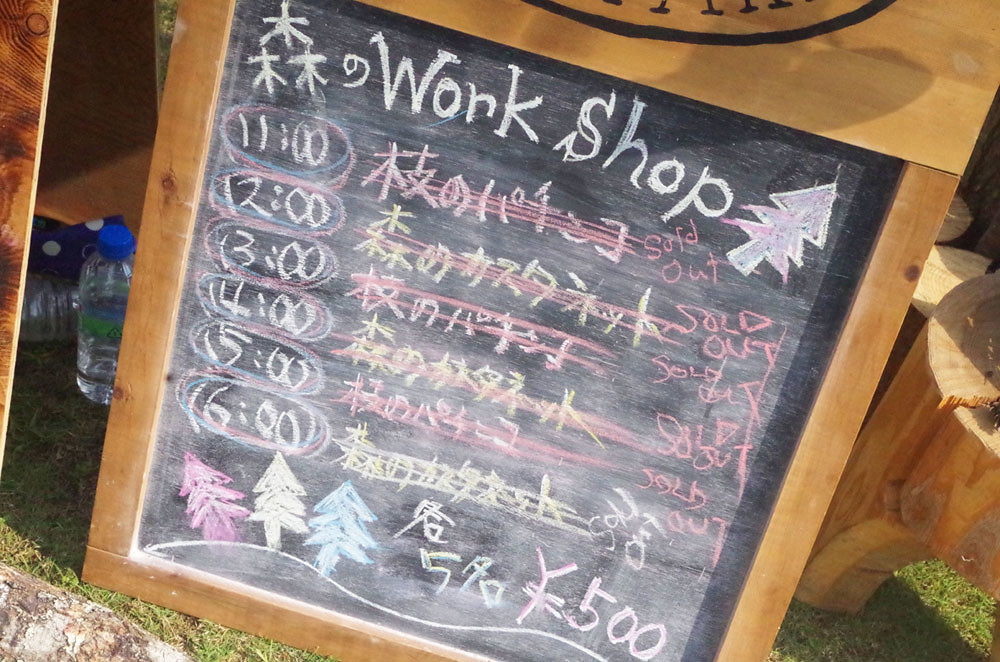 森の Work Shop
11:00 枝のパチンコ Sold Out
12:00 森のカスタネット SOLD OUT
13:00 枝のパチンコ Sold OUT
14:00 森のカスタネット SOLD OUT
15:00 枝のパチンコ SOLD OUT
16:00 森のカスタネット Sold Out
各
5名 ¥500